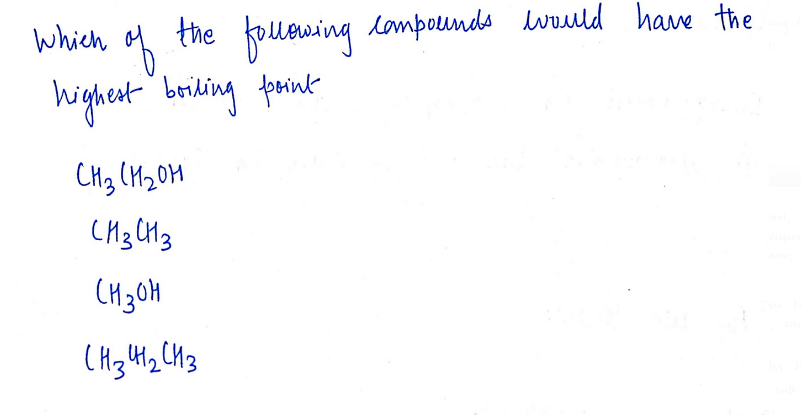 Which of the following compounds would have the
highest boiling point
CH3CH2OH
CH3CH3
CH3OH
CH3CH2CH3